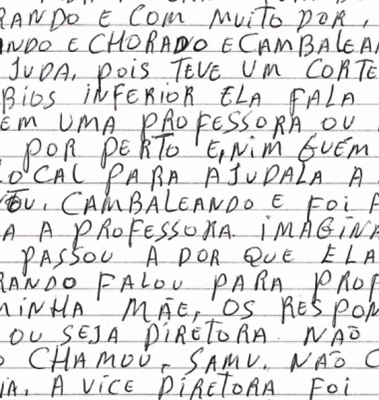 RANDO E COM MUITO DOR,
ANDO E CHORADO E CAMBALEAN
JUDA, POIS TEVE UM CORTE
BIOS INFERIOR ELA FALA
EM UMA PROFESSORA OU
POR PERTO E, NIM GUÉM
LOCAL PARA AJUDALA A
CAMBALEANDO E FOI A
A A PROFESSORA IMAGINA
PASSOU A DOR QUE ELA
RANDO FALOU PARA PROF
MINHA MÃE, OS RESPON
OU SEJA DIRETORA NÃO
O CHAMOU, SAMU. NÃO C
IA, A VICE DIRETORA FOI